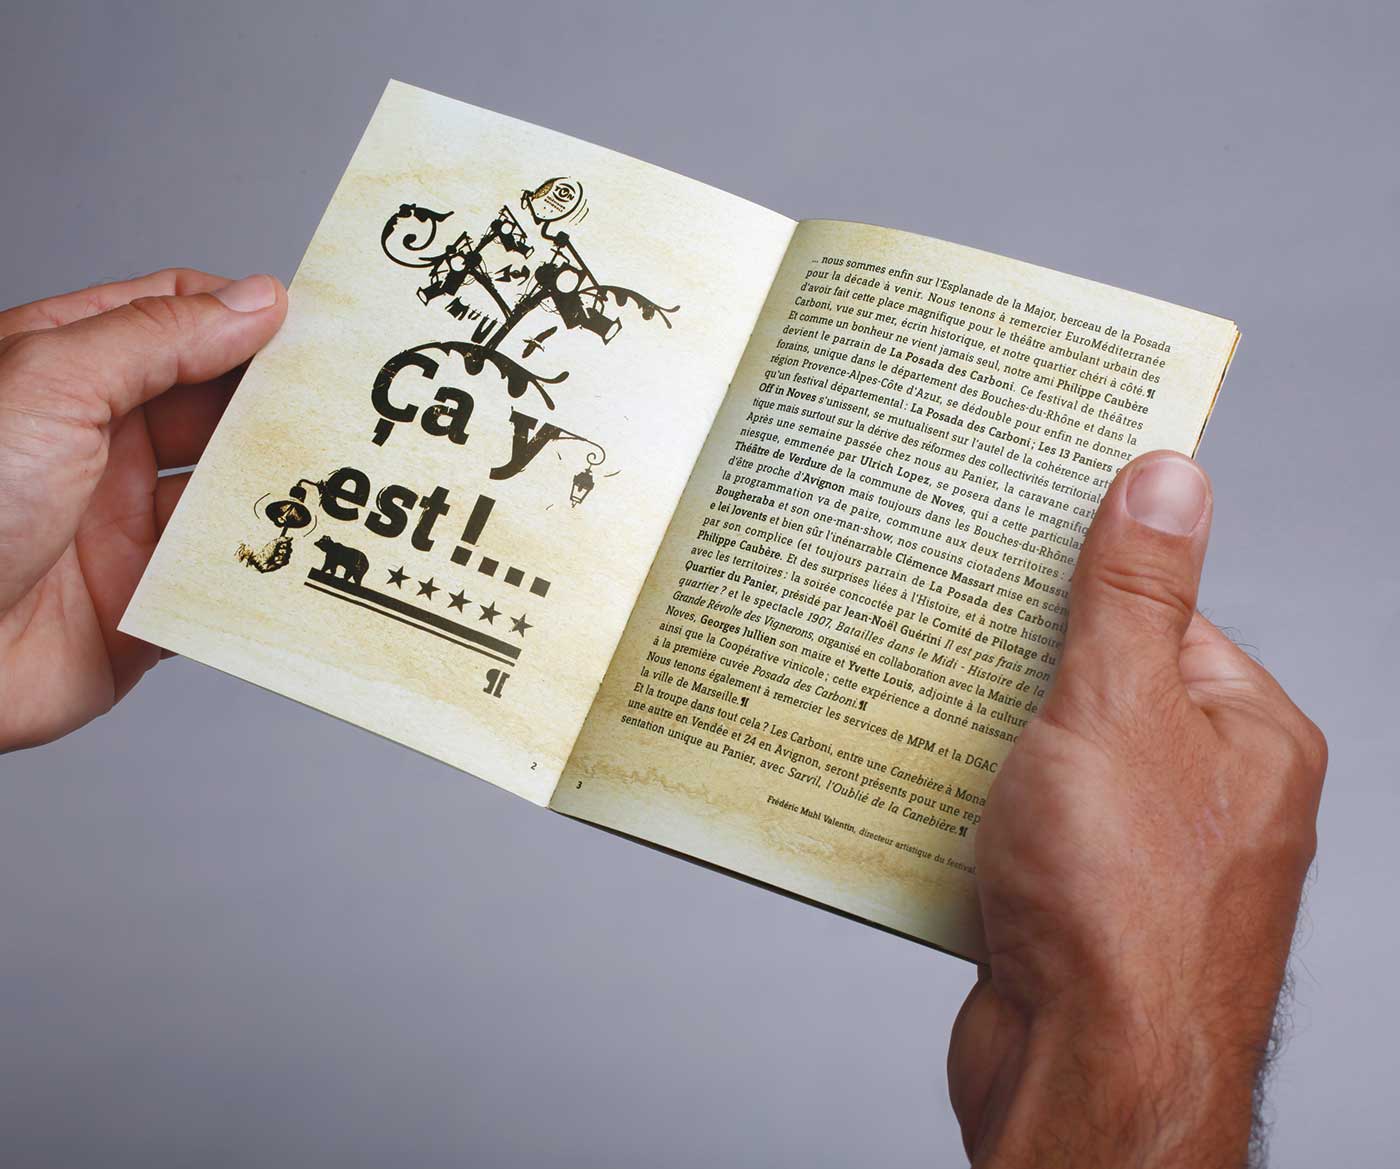 Ça y
est !...
¶
2
... nous sommes enfin sur l'Esplanade de la Major, berceau de la Posada
pour la décade à venir. Nous tenons à remercier EuroMéditerranée
d'avoir fait cette place magnifique pour le théâtre ambulant urbain des
Carboni, vue sur mer, écrin historique, et notre quartier chéri à côté.¶
Et comme un bonheur ne vient jamais seul, notre ami Philippe Caubère
devient le parrain de La Posada des Carboni. Ce festival de théâtres
forains, unique dans le département des Bouches-du-Rhône et dans la
région Provence-Alpes-Côte d'Azur, se dédouble pour enfin ne donner
qu'un festival départemental : La Posada des Carboni ; Les 13 Paniers
Off in Noves s'unissent, se mutualisent sur l'autel de la cohérence
tique mais surtout sur la dérive des réformes des collectivités
Après une semaine passée chez nous au Panier, la caravane
niesque, emmenée par Ulrich Lopez, se posera dans le
Théâtre de Verdure de la commune de Noves, qui a cette
d'être proche d'Avignon mais toujours dans les Bouches-du-Rhône.
la programmation va de paire, commune aux deux territoires :
Bougheraba et son one-man-show, nos cousins ciotadens Moussu
e lei Jovents et bien sûr l'inénarrable Clémence Massart mise en
par son complice (et toujours parrain de La Posada des Carboni)
Philippe Caubère. Et des surprises liées à l'Histoire, et à notre histoire
avec les territoires : la soirée concoctée par le Comité de Pilotage du
Quartier du Panier, présidé par Jean-Noël Guérini Il est pas frais mon
quartier ? et le spectacle 1907, Batailles dans le Midi - Histoire de la
Grande Révolte des Vignerons, organisé en collaboration avec la Mairie de
Noves, Georges Jullien son maire et Yvette Louis, adjointe à la culture
ainsi que la Coopérative vinicole ; cette expérience a donné
à la première cuvée Posada des Carboni.¶
Nous tenons également à remercier les services de MPM et la DGAC
la ville de Marseille.¶
Et la troupe dans tout cela ? Les Carboni, entre une Canebière à
une autre en Vendée et 24 en Avignon, seront présents pour une
sentation unique au Panier, avec Sarvil, l'Oublié de la Canebière.¶
Frédéric Muhl Valentin, directeur artistique du festival.
3